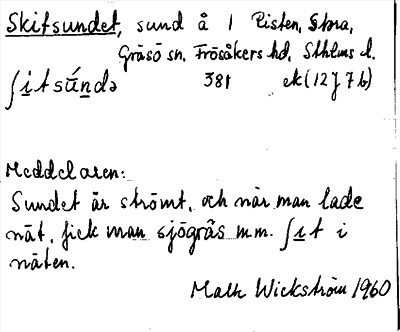 Skitsundet, sund å 1 Risten,
Gräsö sn, Frösåkers hd, Sthlms l.
ʃi̲tsún̲də 381 ek (12 J 7 b)
Meddelaren:
Sundet är strömt, och när man lade
nät, fick man sjögräs m.m. ʃi̲t i
näten.
Math Wickström 1960